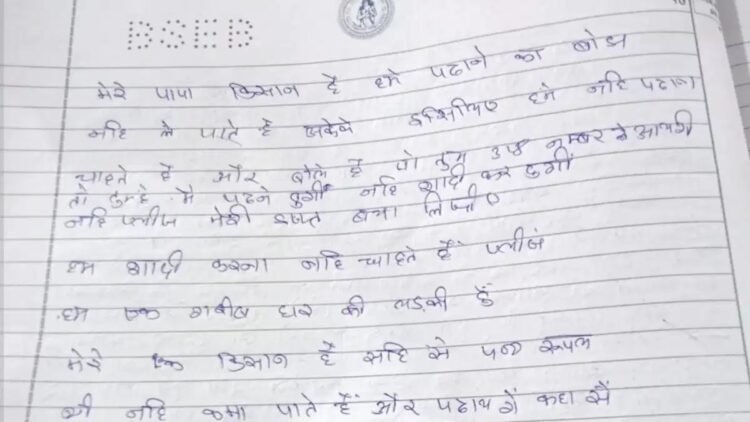 BSEB
मेरे पापा किसान है हमे पढाने का बोझ
नहि ले पाते है इसिलिए हमे नहि पढाना
चाहते है और बोले है जो तुम 318 नम्बर से आयगी
तो तुम्हे मै पढने दुगाँ नहि शादी कर दुगाँ
नहि प्लीज मेरी इज्जत बचा लिजीए
हम शादी करना नहि चाहते हैं प्लीज
हम एक गरीब घर की लड़की हूँ
मेरे एक किसान है सहि से पन्द्र रूपया
भी नहि कमा पाते हैं और पढाय गें कहा सें